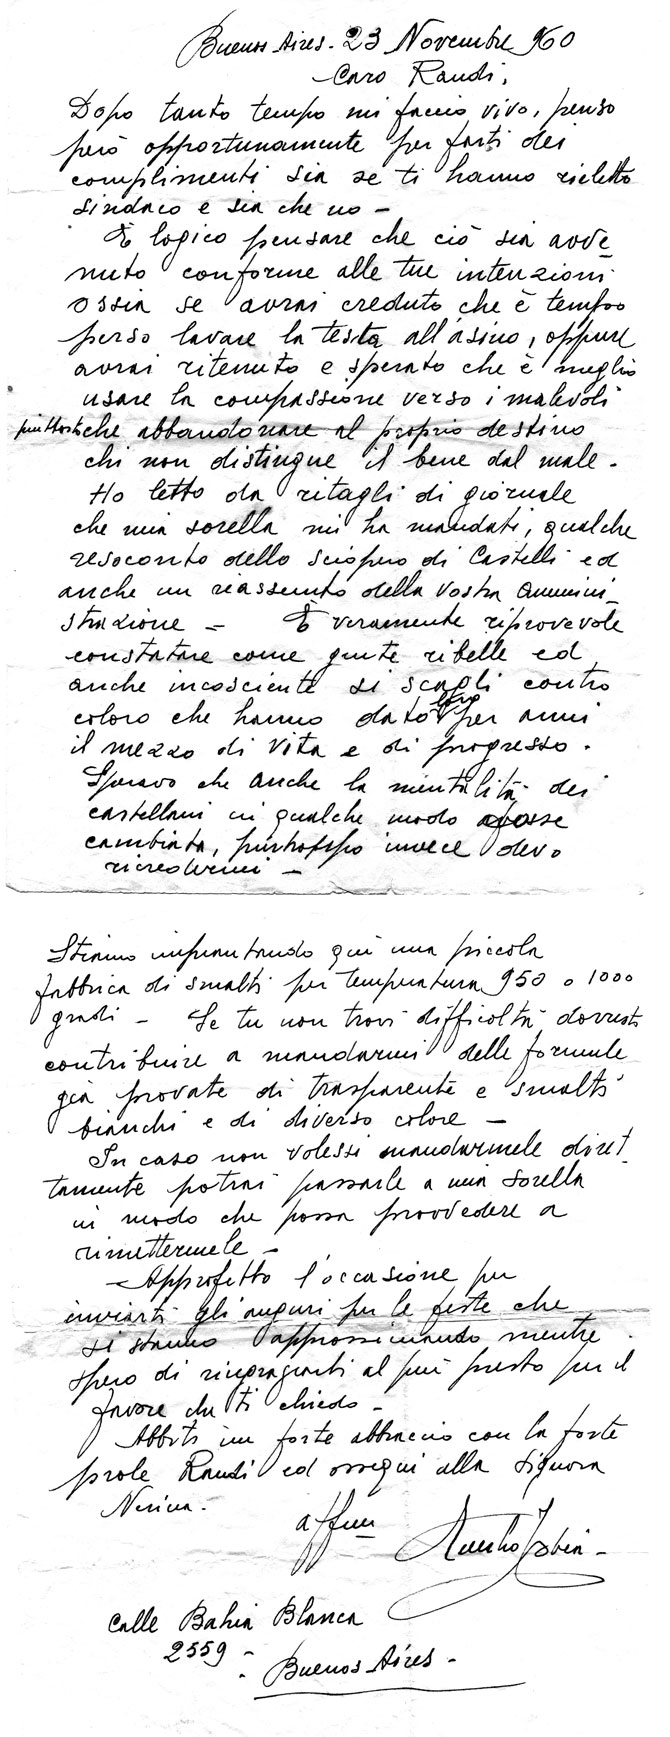 Buenos Aires. 23 Novembre 960
Caro Randi,
Dopo tanto tempo mi faccio vivo, penso
però opportunamente per farti dei
complimenti sia se ti hanno rieletto
sindaco e sia che no -
È logico pensare che ciò sia avve
nuto conforme alle tue intenzioni
ossia se avrai creduto che è tempo
perso lavare la testa all'asino, oppure
avrai ritenuto e sperato che è meglio
usare la compassione verso i malevoli
piuttosto che abbandonare al proprio destino
chi non distingue il bene dal male.
Ho letto da ritagli di giornale
che mia sorella mi ha mandati, qualche
resoconto dello sciopero di Castelli ed
anche un riassunto della vostra Ammini_
strazione - È veramente riprovevole
constatare come gente ribelle ed
anche incosciente si scagli contro
coloro che hanno dato loro per anni
il mezzo di vita e di progresso.
Speravo che anche la mentalità dei
castellani in qualche modo fosse
cambiata, purtroppo invece devo
ricredermi -
Stiamo impiantando qui una piccola
fabbrica di smalti per temperatura 950 o 1000
gradi - Se tu non trovi difficoltà dovresti
contribuire a mandarmi delle formule
già provate di trasparente e smalti
bianchi e di diverso colore -
In caso non volessi mandarmele diret_
tamente potrai passarle a mia sorella
in modo che possa provvedere a
rimettermele -
Approfitto l'occasione per
inviarti gli auguri per le feste che
si stanno approssimando mentre
spero di ringraziarti al più presto per il
favore che ti chiedo -
Abbiti un forte abbraccio con la forte
prole Randi ed ossequi alla Signora
Nerina.
affmo
calle Bahia Blanca
2559 -
Buenos Aires -